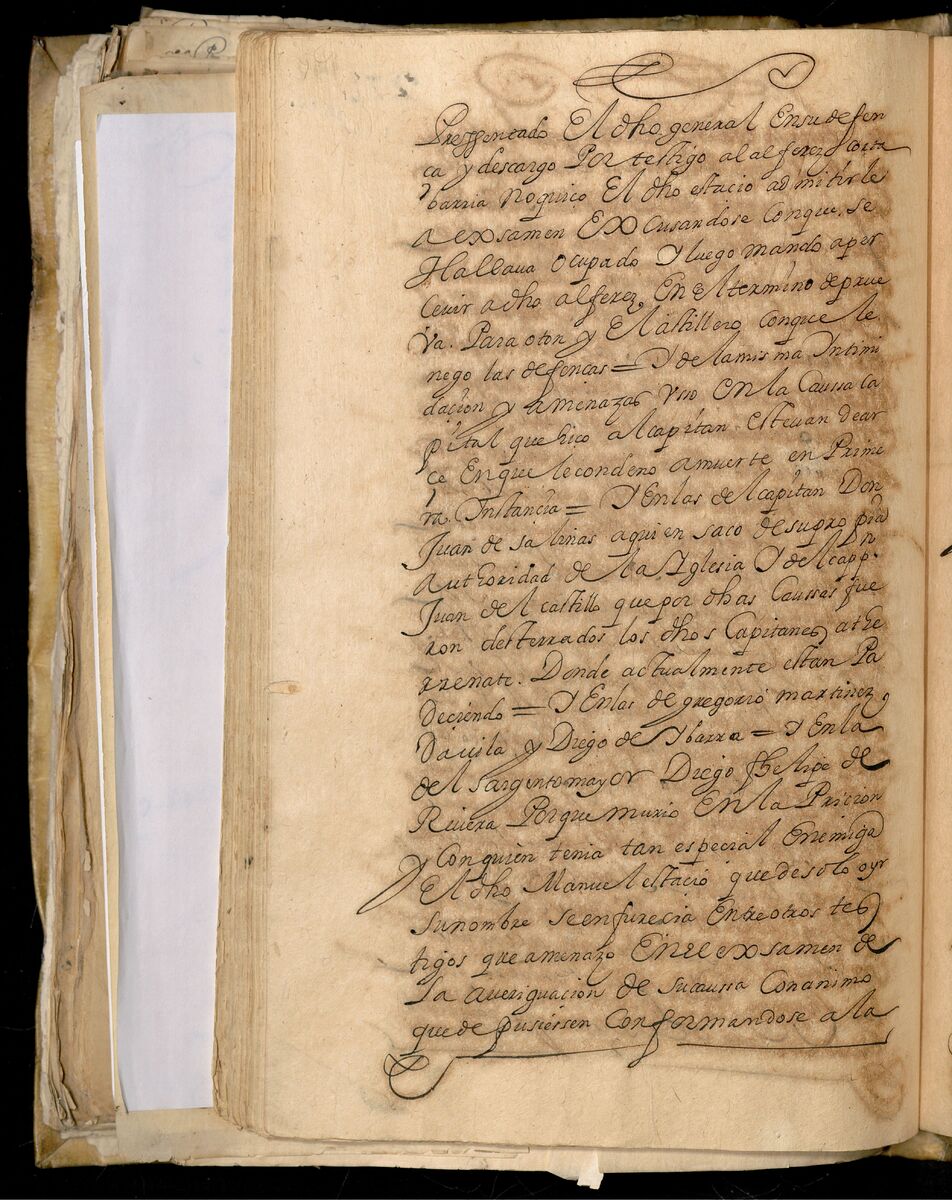 Pressentado El dho general Ensu defen
ca y descargo Por testigo al alferez
barria Noquico El dho estacio admitirle
a exsamen Excusandose Conque, se
Hallava Ocupado Y luego mando aper
Cevir adho alferez, En El termino de prue
va. Para oton y El astillero, conque le
nego las defencas = Y de lamisma Yntimi
dacion y amenazas Vso En la Caussa ca
pital que hico al capitan Estevan de ar
ce En que le condeno a muerte en Prime
ra. Instancia = Y En las del capitan Don
Juan de salinas aquien saco de su propria
authoridad de la Iglesia Y del cappn.
Juan del castillo que por dhas Caussas fue
ron desterrados los dhos Capitanes, athe
rrenate. Donde actualmente estan Pa
deciendo = Y En las de gregorio martinez,
Davila y Diego de Ybarra = Y En la
del Sargento mayor Diego Phelipe de
Rivera Porque murio En la Pricion
y Con quien tenia tan especial Enemiga
El dho Manuel estacio que de solo oyr
su nombre se enfurecia Entre otros tes
tigos que amenazo En el exsamen de
la averiguacion de su caussa Con animo
que depusiessen Conformandose a la